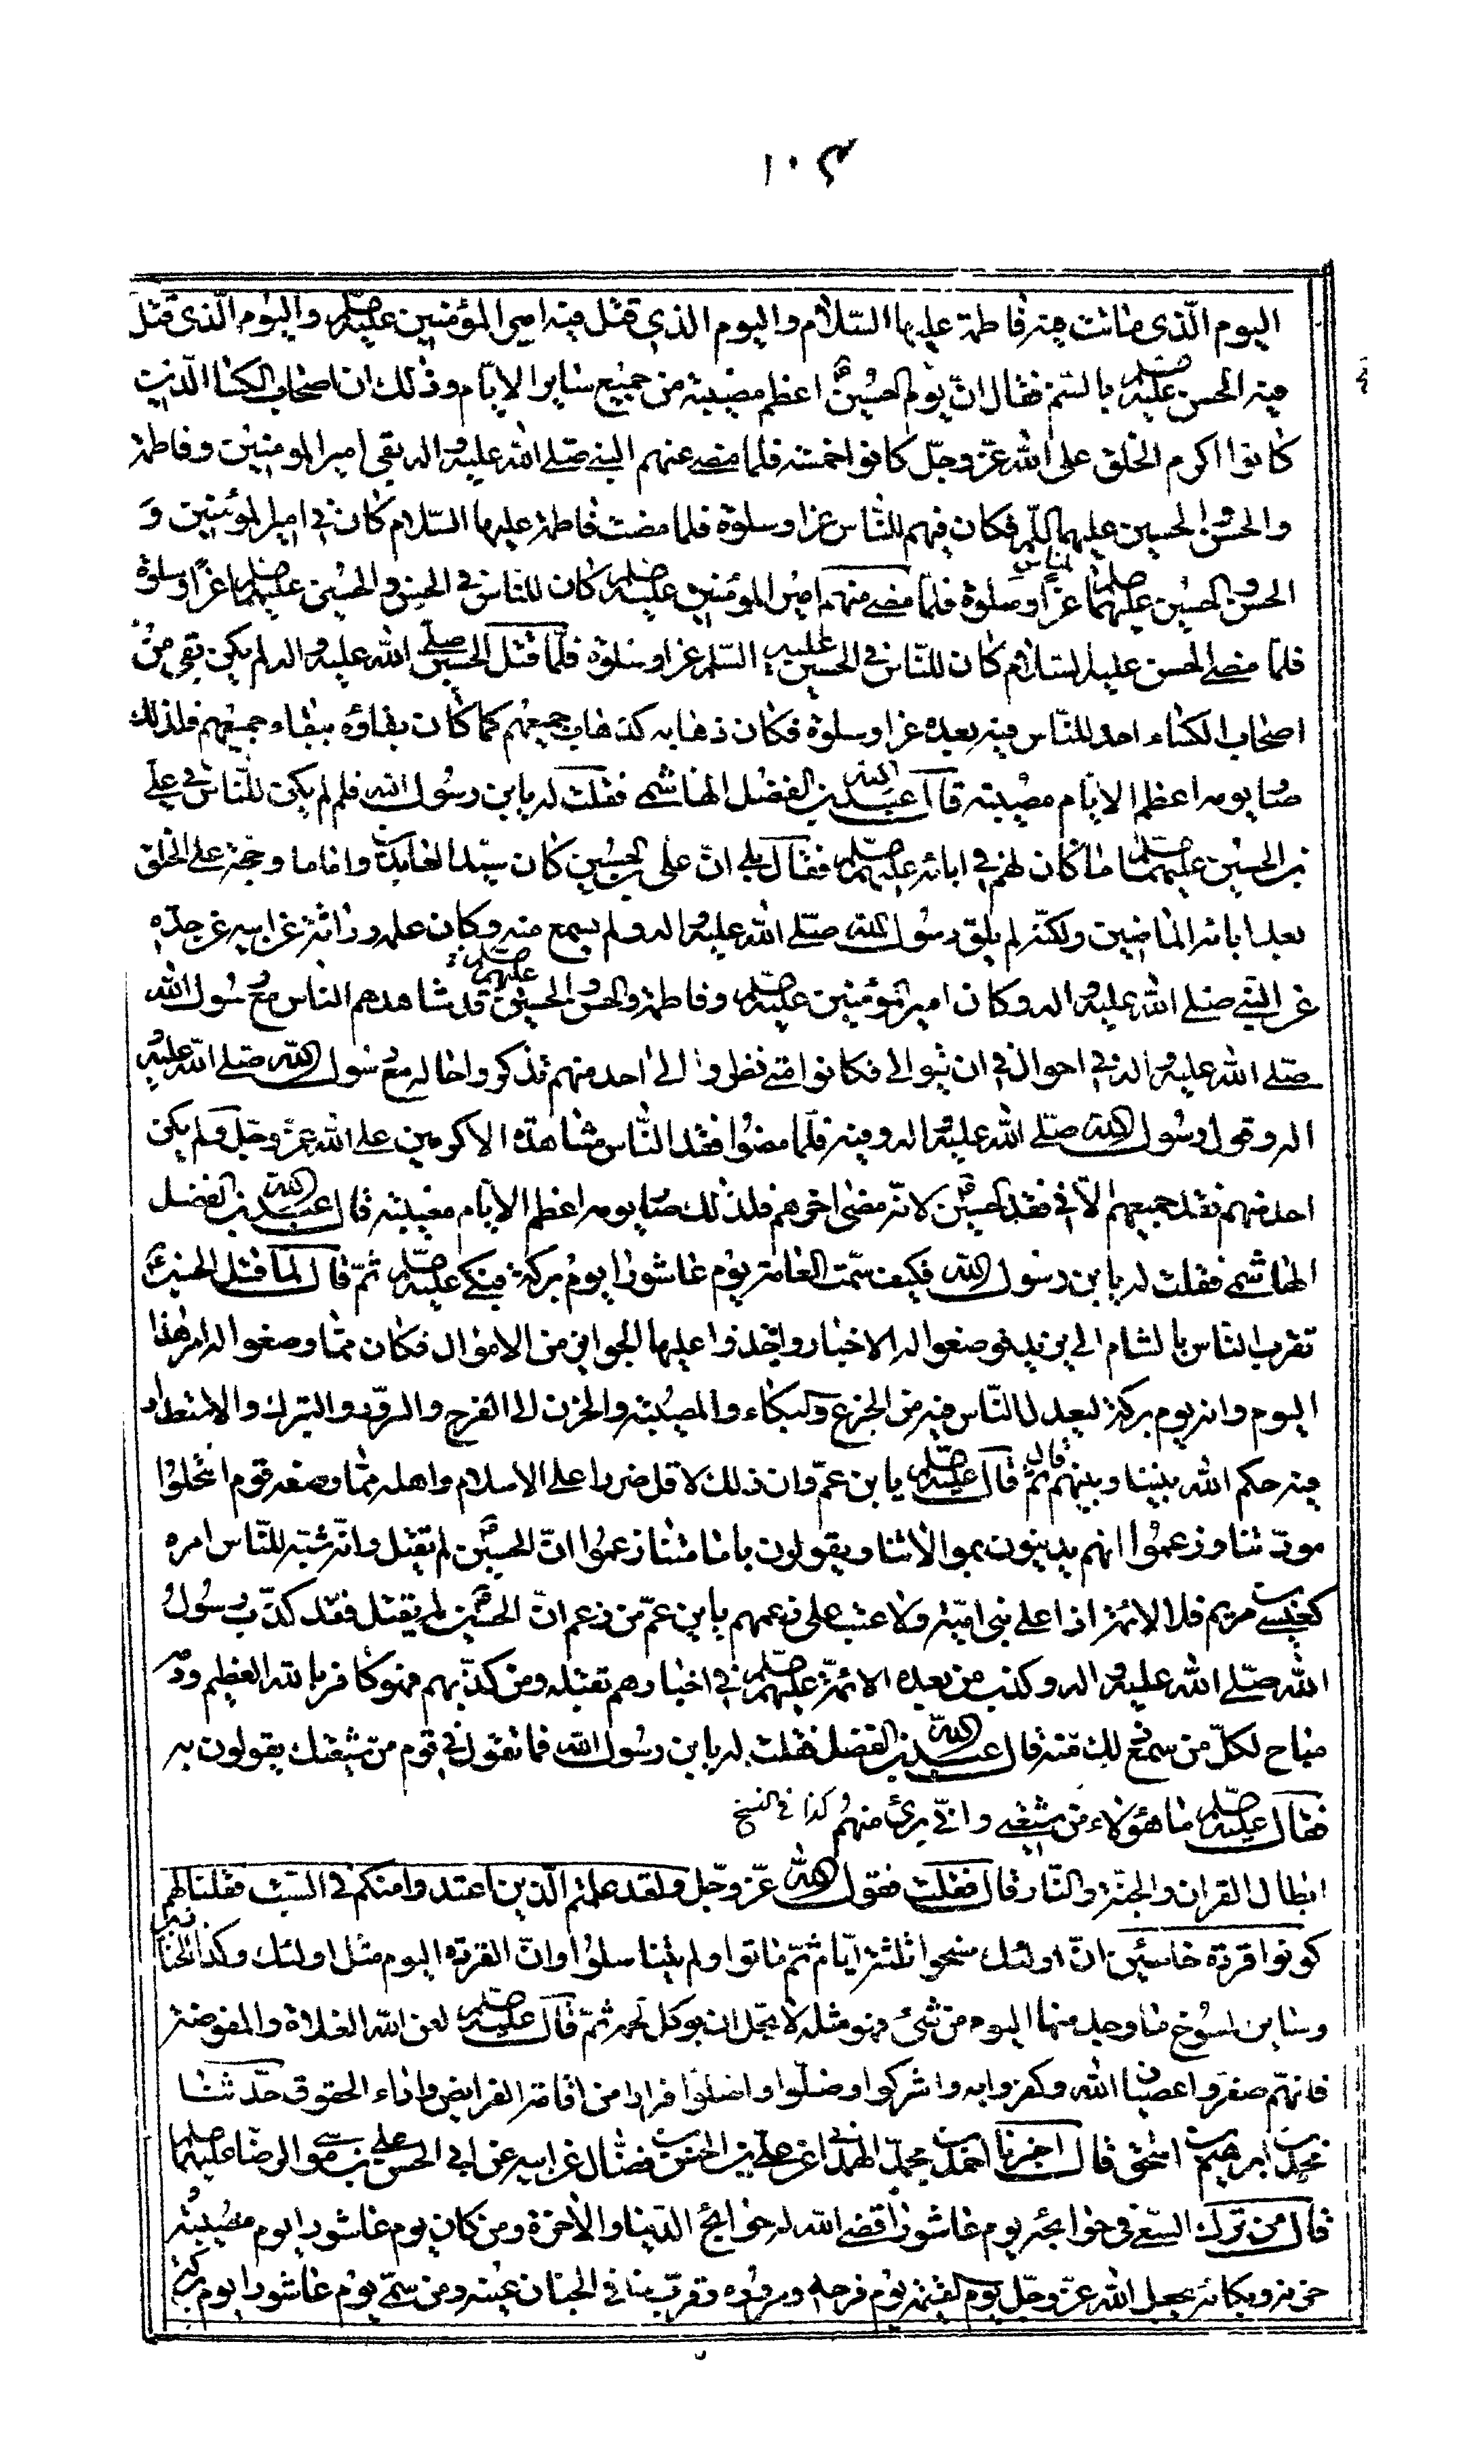 ١٠٣
اليوم الّذى ماتت فيه فاطمة عليها السّلام و اليوم الذي قتل فيه امير المؤمنين عليه صلم و اليوم الّذى قتل
فيه الحسن عليه صلم بالسّم فقال انّ يوم الحسين ع اعظم مصيبة من جميع ساير الايّام و ذلك ان اصحاب الكسا الّذين
كانوا اكرم الخلق على الله عزّ و جلّ كانوا خمسة فلما مضى عنهم النبى صلّى الله عليه و اله بقى امير المومنين و فاطمة
و الحسن و الحسين عليهما السّلم فكان فيهم للنّاس عزا و سلوة فلما مضت فاطمة عليها السّلام كان في امير المؤمنين و
الحسن و الحسين عليهما صلم للناس عزا و سلوة فلمّا مضى منهم امير المؤمنين عليه صلم كان للنّاس في الحسن و الحسين عليهما صلم عزا و سلوة
فلمّا مضى الحسن عليه السّلام كان للنّاس في الحسين عليه السّلم عزا و سلوة فلمّا قتل الحسين صلّى الله عليه و اله لم يكن بقى من
اصحاب الكساء احد للنّاس فيه بعده عزا و سلوة فكان ذهابه كذهاب جميعهم كما كان بقاؤه ببقاء جميعهم فلذلك
صار يومه اعظم الايّام مصيبة قال عبد الله بن الفضل الهاشمى فقلت له يا بن رسول الله فلم لم يكن للنّاس في على
بن الحسين عليهما صلم ما كان لهم في ابائه عليهم صلم فقال بلى انّ على بن الحسين كان سيّد العابدين و اماما و حجة على الخلق
بعد ابائه الماضين و لكنّه لم يلق رسول الله صلّى الله عليه و اله و لم يسمع منه و كان علمه وراثة عن ابيه عن جدّه
عن النّبى صلى الله عليه و اله و كان امير المؤمنين عليه صلم و فاطمة و الحسن و الحسين عليهم صلم قد شاهدهم الناس مع رسول الله
صلّى الله عليه و اله في احوال في ان يتوالى فكانوا متى نظروا الى احد منهم تذكروا حاله مع رسول الله صلى الله عليه و
اله و قول رسول الله صلّى الله عليه و اله و فيه فلّما مضوا فقد النّاس مشاهدة الاكرمين على الله عزّ و جلّ و لم يكن
احد منهم فقد جميعهم الّا في فقد الحسين ع لانّه مضى اخرهم فلذلك صار يومه اعظم الايّام مصيبة قال عبد الله بن الفضل
الهاشمى فقلت له يا بن رسول الله فكيف سمّت العامة يوم عاشورا يوم بركة فبكى عليه صلم ثمّ قال لما قتل الحسين ع
تقرب الناس بالشام الى يزيد فوضعوا له الاخبار و اخذوا عليها الجوايز من الاموال فكان ممّا وضعوا له امر هذا
اليوم و انه يوم بركة ليعدل النّاس فيه من الجزع و البكاء و المصيبة و الحزن الى الفرح و السّرور و التبرك و الاستعداد
فيه حكم الله بيننا و بينهم قال ثمّ قال عليه صلم يا بن عمّ و ان ذلك لاقل ضررا على الاسلام و اهله ممّا وضعه قوم انتحلوا
مودّتنا و زعموا انهم يدينون بموالاتنا و يقولون بامامتنا زعموا انّ الحسين ع لم يقتل و انّه شبّه للنّاس امره
كعيسى بن مريم فلا لائمة اذا على بنى اميّة و لا عتب على زعمهم يا بن عمّ من زعم انّ الحسين ع لم يقتل فقد كذّب رسول
الله صلّى الله عليه و اله و كذب من بعده الائمّة عليهم صلم في اخبارهم بقتله و من كذّبهم فهو كافر بالله العظيم و دمه
مباح لكلّ من سمع ذلك منه قال عبد الله بن الفضل فقلت له يا بن رسول الله فما تقول في قوم من شيعتك يقولون به
فقال عليه صلم ما هؤلاء من شيعتى و انّى برئ منهم كذا في النسخ
ابطال القران و الجنّة و النّار قال فقلت فقول الله عزّ و جلّ و لقد علمتم الّذين اعتدوا منكم في السّبت فقلنا لهم
كونوا قردة خاسئين انّ اولئك مسخوا ثلثة ايّام ثمّ ماتوا و لم يتناسلوا و انّ القردة اليوم مثل اولئك و كذا الخنازير
و ساير المسوخ ما وجد منها اليوم من شئ فهو مثله لا يحل ان يوكل لحمه ثمّ قال عليه صلم لعن الله الغلاة و المفوضة
فانهّم صغّروا عصيان الله و كفروا به و اشركوا و ضلّوا و اضلوا فرارا من اقامة الفرايض و اداء الحقوق حدّثنا
محمّد بن ابرهيم بن اسحق قال اخبرنا احمد بن محمّد الهمدانى عن على بن الحسن بن فضّال عن ابيه عن ابى الحسن على بن موسى الرضا عليهما صلم
قال من ترك السّعى فى حوائجه يوم عاشورا قضى الله له حوائج الدّنيا و الاخرة و من كان يوم عاشورا يوم مصيبته
حزنه و بكائه يجعل الله عزّ و جلّ يوم القيمة يوم فرحه و سروره و قرّت بنا في الجنان عينه و من سمّى يوم عاشورا يوم بركة